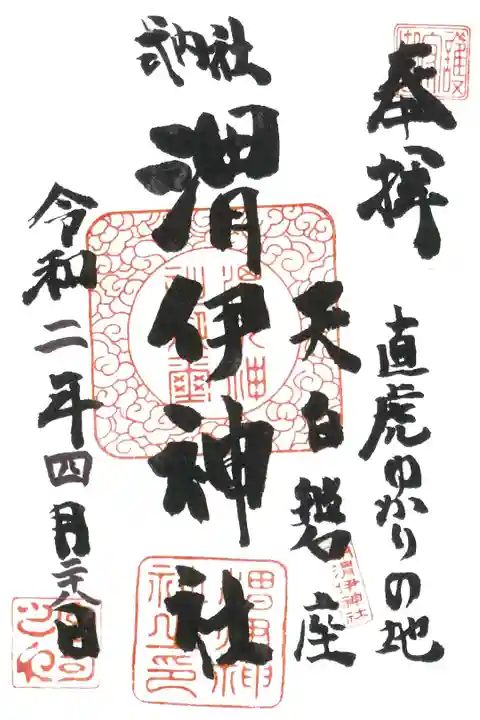 奉拝
直虎ゆかりの地
天白
磐座
渭伊神社
式内社
渭伊神社
令和二年四月二十八日